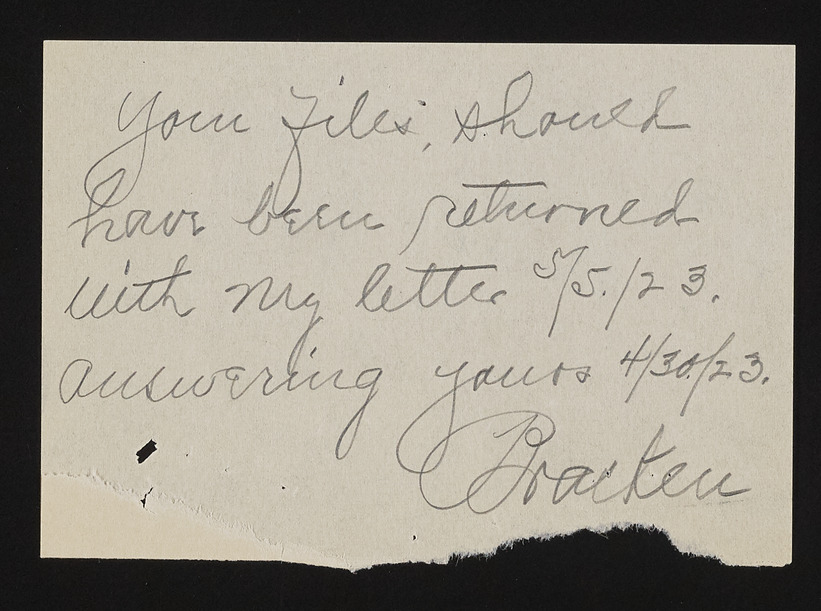 Your files, should
have been returned
with my letter 5/5./23.
answering yours 4/30/23.
Bracken